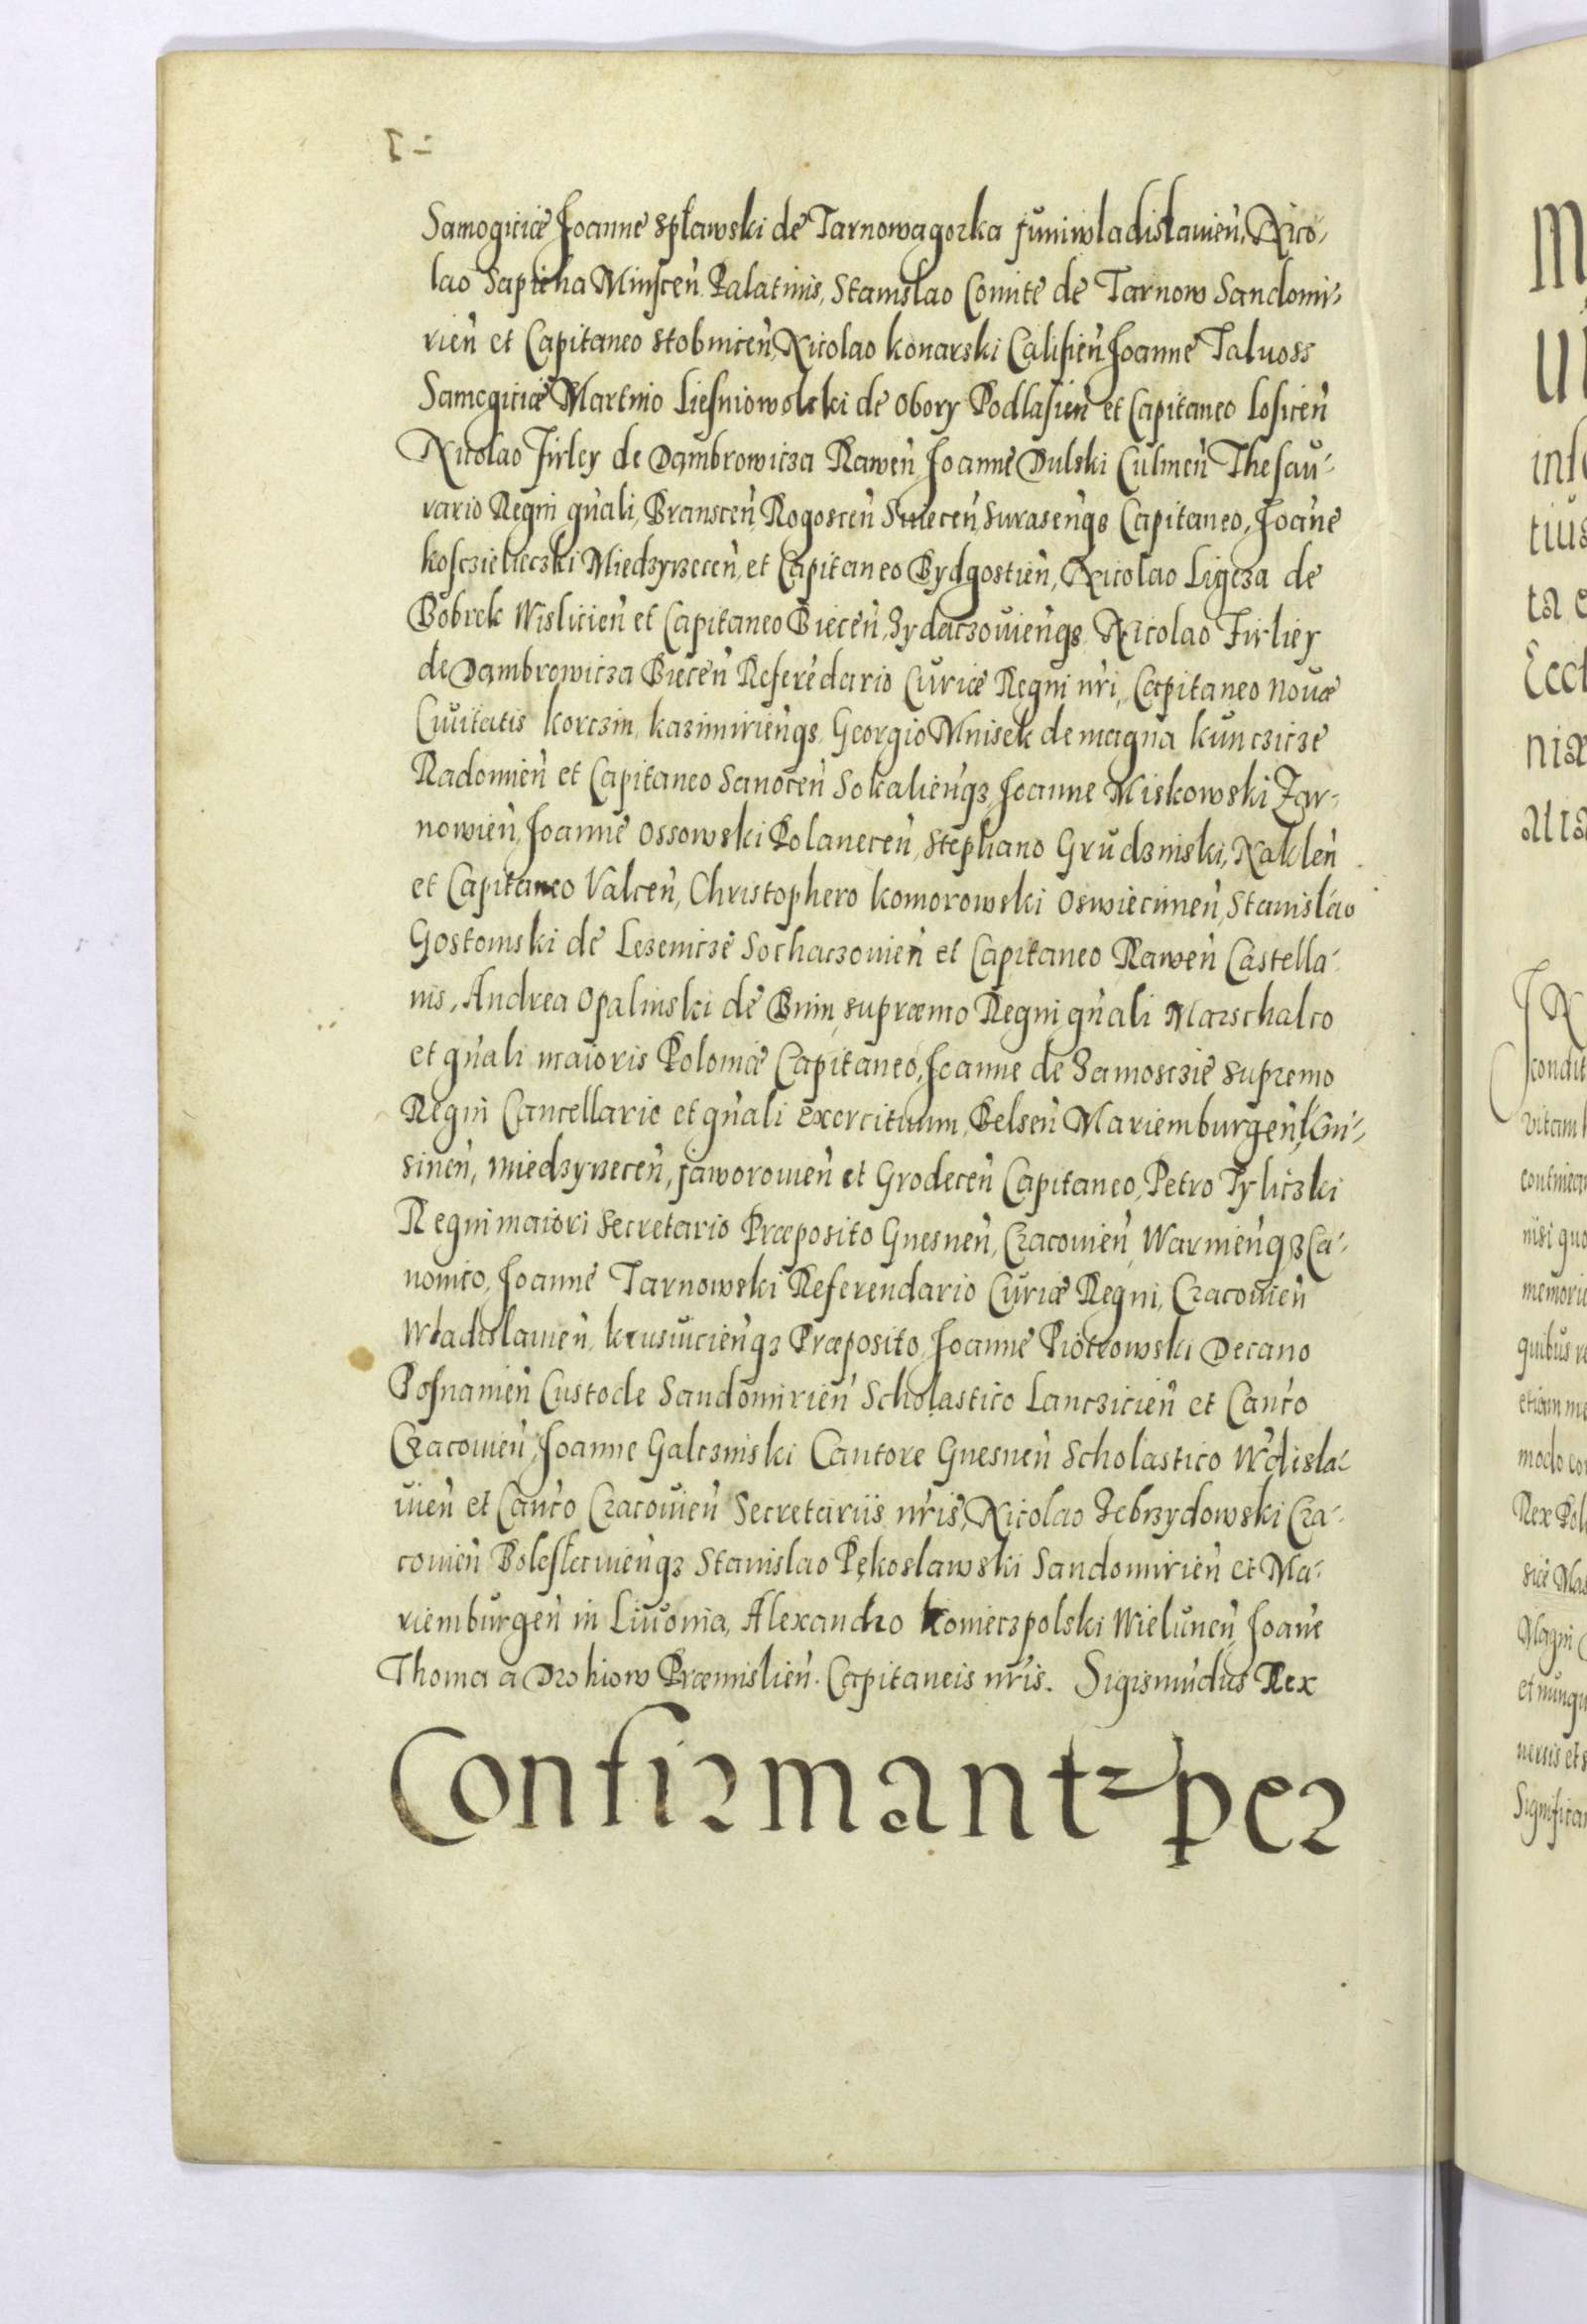 Samogitiæ Joanne Spławski de Tarnowagorka Juniwladislauień, Nico-
lao Sapieha Minsceń Palatinis, Stanislao Comite de Tarnow Sandomi-
rień et Capitaneo Stobniceń, Nicolao Konarski Calisień Joanne Taluoss
Samogitiæ Martino Liesniowolski de Obory Podlasień et Capitaneo Losiceń
Nicolao Firley de Dąmbrowicza Raweń Joanne Dulski Culmeń Thesau-
rario Regni gńali, Bransceń, Rogosceń Surasenqȝ Capitaneo, Joańe
Kosczieleczki Miedzyrzeceń, et Capitaneo Bydgostień, Nicolao Ligęza de
Bobrek Wislicień et Capitaneo Bieceń, Zydaczouieńqȝ Nicolao Firliey
de Dąmbrowicza Bieceń Referēdario Curiæ Regni nŕi, Capitaneo Nouæ
Ciuitatis Korczin, Kazimirieńqȝ, Georgio Mnisek de magna Kunczicze
Radomień et Capitaneo Sanoceń Sokalieńqȝ, Joanne Miskowski Zar-
nowień, Joanne Ossowski Polaneceń, Stephano Grudzinski, Nakleń
et Capitaneo Valceń, Christophero Komorowski Oswiecimeń, Stanislao
Gostomski de Lezenicze Sochaczouień et Capitaneo Raweń Castella-
nis, Andrea Opalinski de Bnin, supræmo Regni gńali Marschalco
et gńali maioris Poloniæ Capitaneo, Joanne de Zamosczie Supremo
Regni Cancellario et gńali Exercituum, Belseń Mariemburgeń, Kni-
sineń, Miedzyrzeceń, Jaworouień et Grodeceń Capitaneo, Petro Tyliczki
Regni maiori Secretario Præposito Gnesneń, Cracouień, Warmieńqȝ Ca-
nonico, Joanne Tarnowski Referendario Curiæ Regni, Cracouień
Wladislauień, Krusuicieńqȝ Præposito, Joanne Piotrowski Decano
Posnanień Custode Sandomirień Scholastico Lanczicień et Cańco
Cracouień, Joanne Galczinski Cantore Gnesneń Scholastico Wdisla-
uień et Cańco Cracouień Secretariis nŕis, Nicolao Zebrzydowski Cra-
couień Bolesłauieńqȝ Stanislao Pękoslawski Sandomirień et Ma-
riemburgeń in Liuonia, Alexandro Konieczpolski Wieluneń, Joańe
Thoma a Drohiow Præmislień. Capitaneis nŕis. Sigismuńdus Rex
Confirmant² per